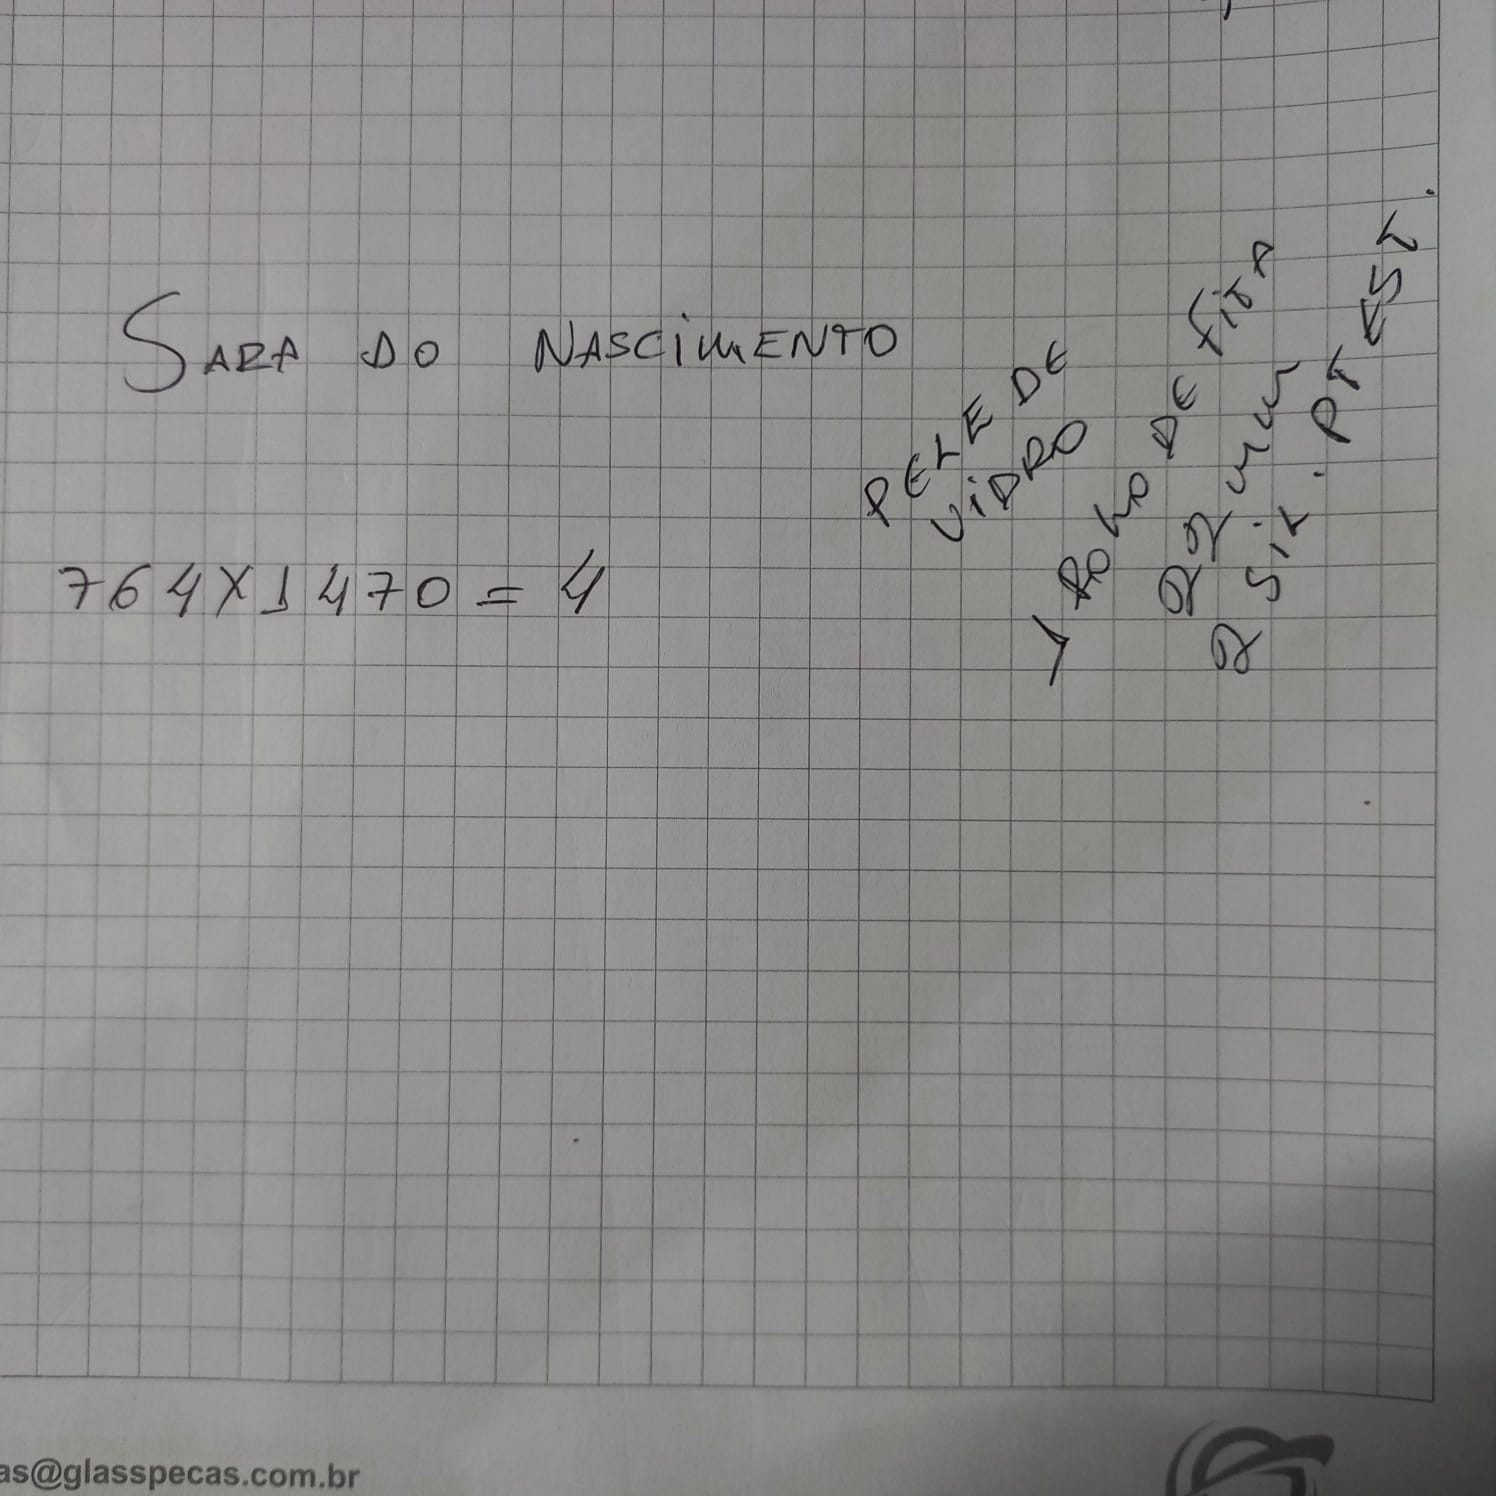 SARA DO NASCIMENTO
PELE DE
VIDRO
764X1470=4
1 ROLO DE FITA
22 mm
2 SIL. PT EST.
as@glasspecas.com.br